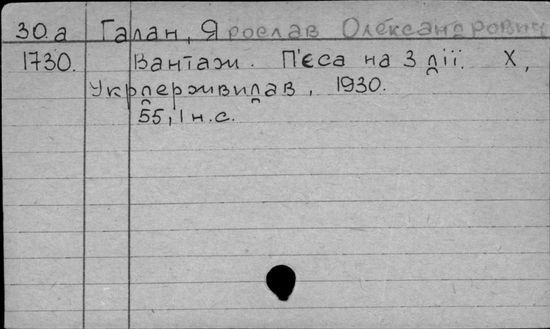 30.а Галан, Ярослав Олександрович
1730. Вантаж. П'єса на 3 дії. Х,
Укрдержвидав, 1930.
55, 1 н.с.